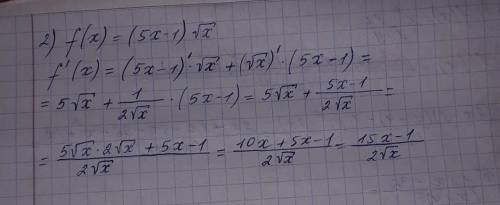 2) f(x) = (5x-1)√x
f'(x) = (5x-1)'·√x + (√x)'·(5x-1) =
= 5√x + 1/(2√x) · (5x-1) = 5√x + (5x-1)/(2√x) =
= (5√x·2√x + 5x-1)/(2√x) = (10x+5x-1)/(2√x) = (15x-1)/(2√x)